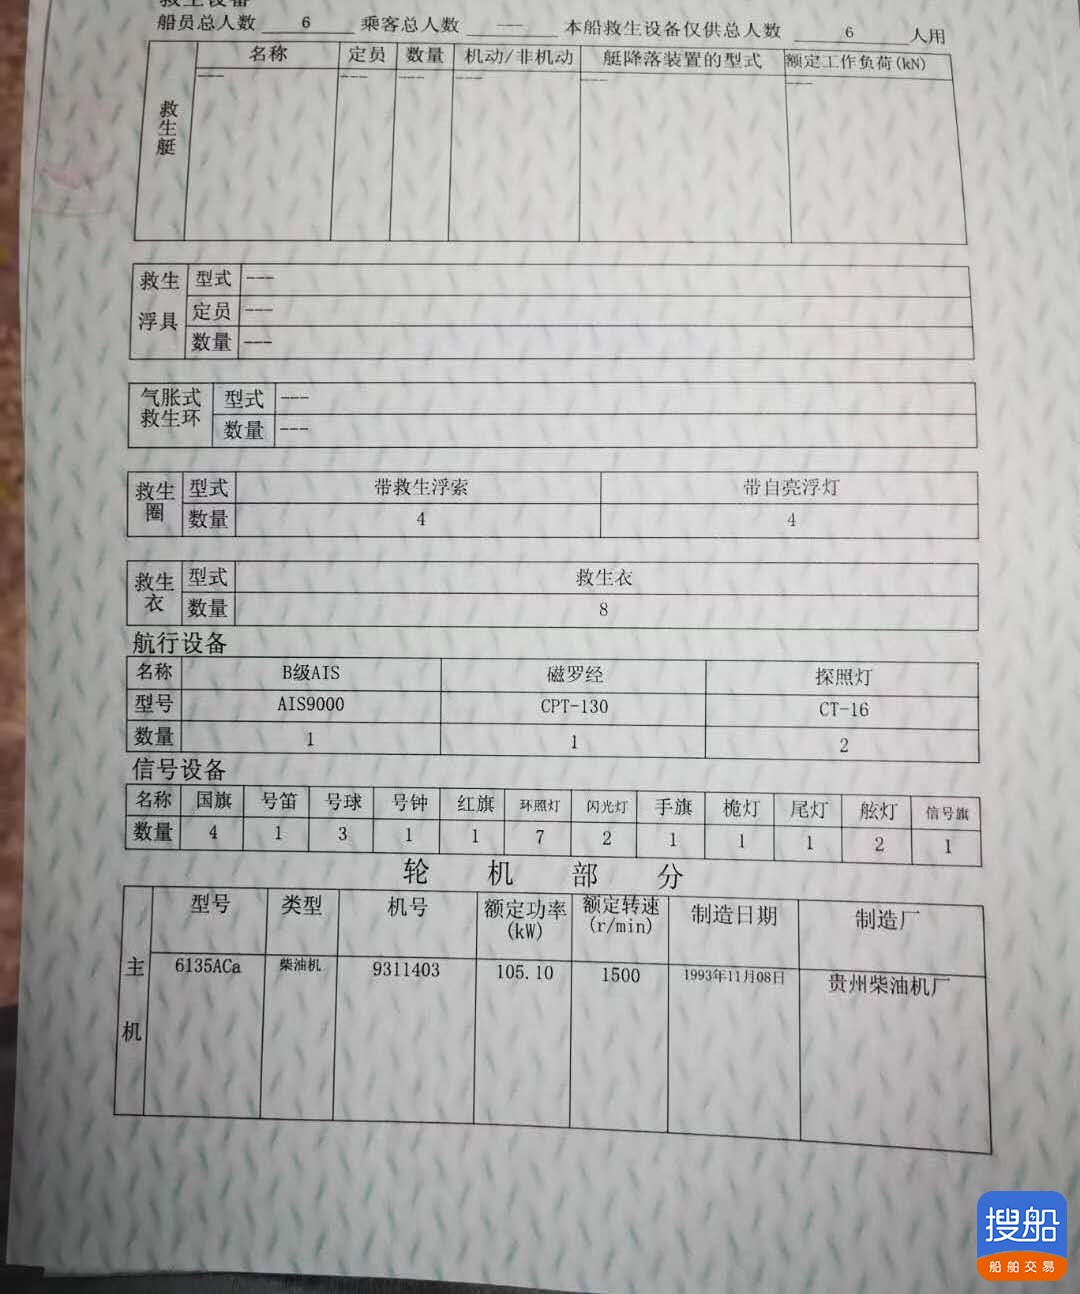 救生设备
船员总人数 6 乘客总人数 --- 本船救生设备仅供总人数 6 人用
救生艇 名称 定员 数量 机动/非机动 艇降落装置的型式 额定工作负荷(kN)
--- --- --- --- --- ---
救生浮具 型式 ---
定员 ---
数量 ---
气胀式救生环 型式 ---
数量 ---
救生圈 型式 带救生浮索 带自亮浮灯
数量 4 4
救生衣 型式 救生衣
数量 8
航行设备
名称 B级AIS 磁罗经 探照灯
型号 AIS9000 CPT-130 CT-16
数量 1 1 2
信号设备
名称 国旗 号笛 号球 号钟 红旗 环照灯 闪光灯 手旗 桅灯 尾灯 舷灯 信号旗
数量 4 1 3 1 1 7 2 1 1 1 2 1
轮机部分
主机 型号 类型 机号 额定功率(kW) 额定转速(r/min) 制造日期 制造厂
6135ACa 柴油机 9311403 105.10 1500 1993年11月08日 贵州柴油机厂
搜船
船舶交易